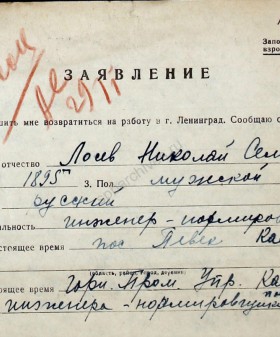 Запо
взро
ЗАЯВЛЕНИЕ
шить мне возвратиться на работу в г. Ленинград. Сообщаю с
отчество Лосев Николай Сем
1895 3. Пол мужской
русский
альность инженер-нормиров
стоящее время пос Певек Ка
(область, район, город, деревня)
горн. Пром. Упр. Ка
инженера-нормировщика